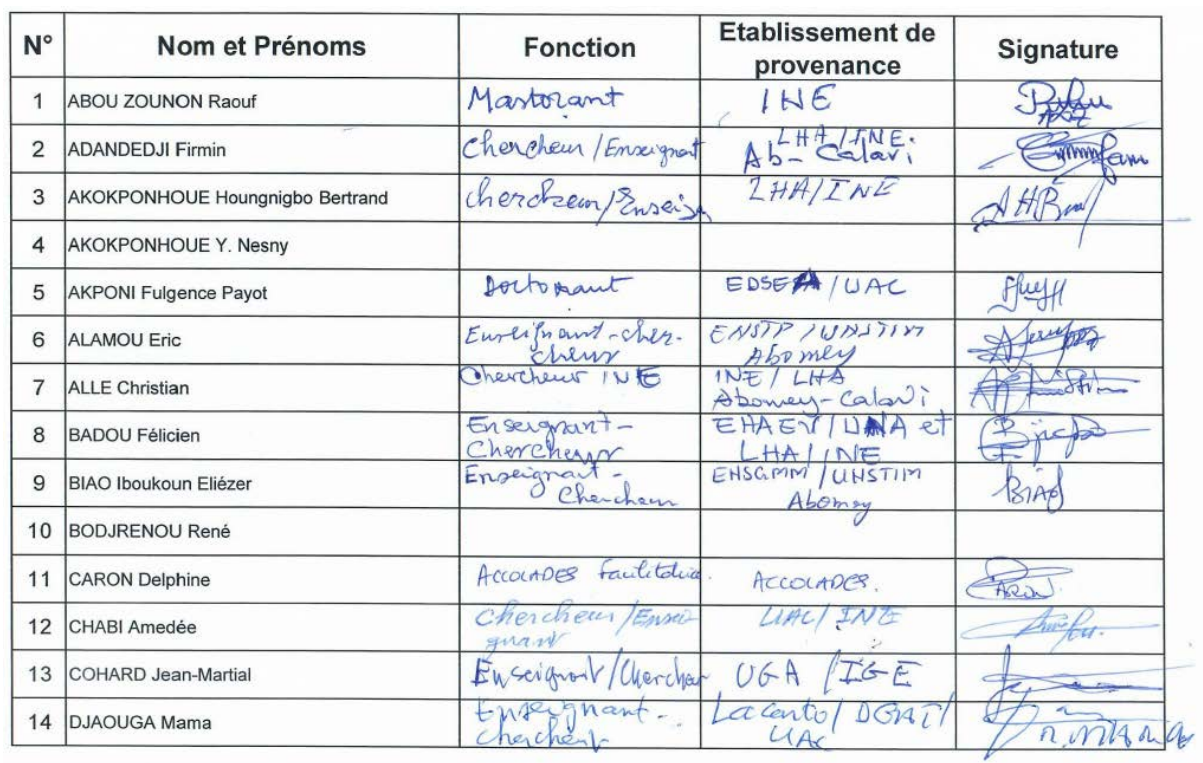 N° Nom et Prénoms Fonction Etablissement de provenance Signature
1 ABOU ZOUNON Raouf Mastorant INE
2 ADANDEDJI Firmin Chercheur/Enseignant LHA/INE. Ab-Calavi
3 AKOKPONHOUE Houngnigbo Bertrand chercheur/Enseig LHA/INE AHB
4 AKOKPONHOUE Y. Nesny
5 AKPONI Fulgence Payot Doctorant EDSEA/UAC
6 ALAMOU Eric Enseignant-cher-cheur ENSTP/UNSTIM Abomey
7 ALLE Christian Chercheur INE INE/LHA Abomey-Calavi
8 BADOU Félicien Enseignant-Chercheur EHAEV/UNA et LHA/INE
9 BIAO Iboukoun Eliézer Enseignant-Chercheur ENSGMM/UNSTIM Abomey BIAO
10 BODJRENOU René
11 CARON Delphine ACCOLADES ACCOLADES. CARON
12 CHABI Amedée Chercheur/Enseignant UAC/INE
13 COHARD Jean-Martial Enseignant/Chercheur UGA/IGE
14 DJAOUGA Mama Enseignant-chercheur Lacarto/DGAT/UAC